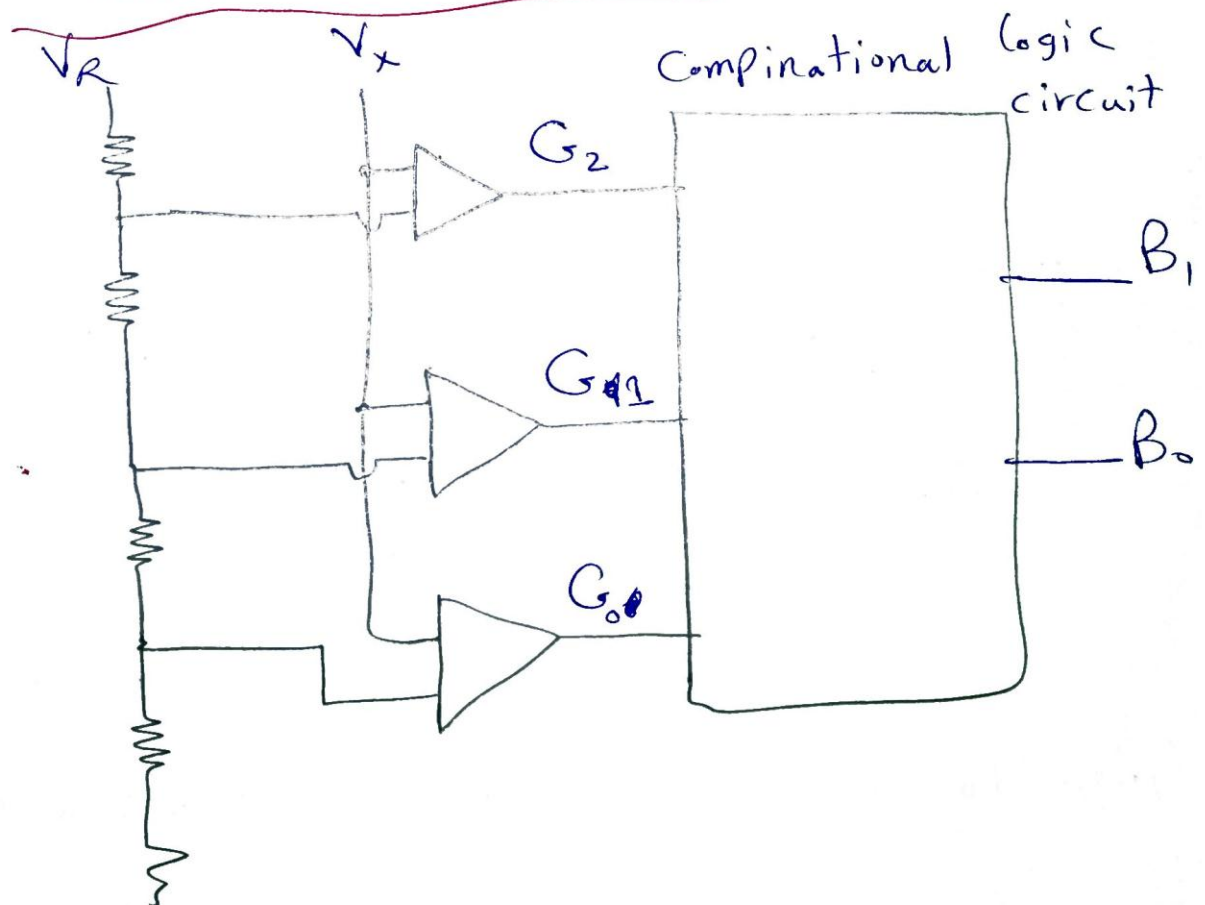 V_R
V_x
Compinational logic
circuit
G_2
B_1
G_1
B_0
G_0